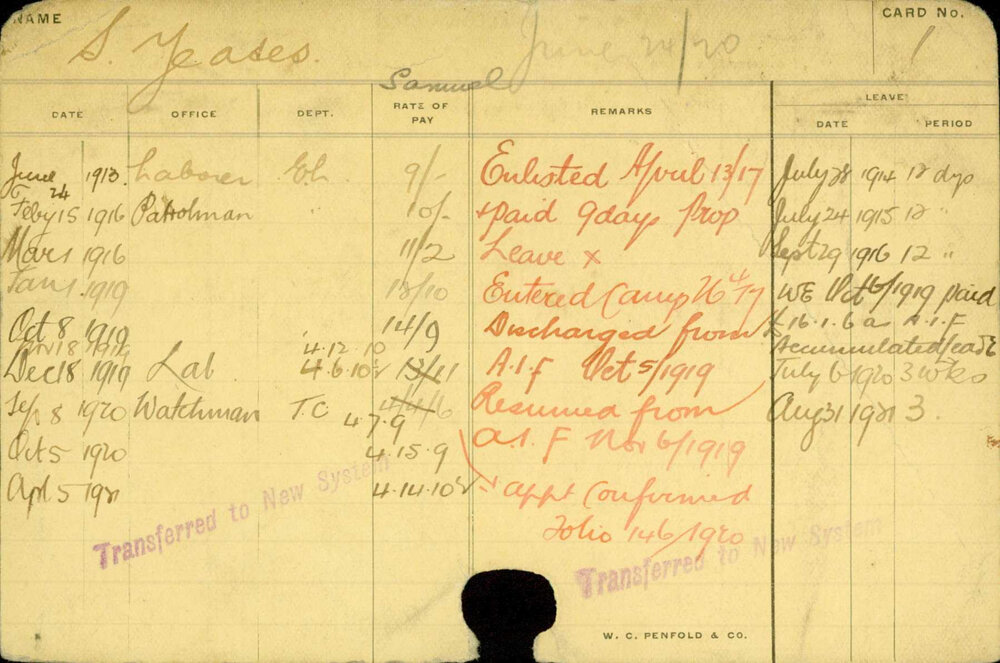 NAME S. Yeates. June 24/20 CARD No. 1
Samuel
DATE OFFICE DEPT. RATE OF PAY REMARKS LEAVE
DATE PERIOD
June 24 1913 Laborer 9/- Enlisted April 13/17 July 28 1914 12 dys
Feby 15 1916 Patrolman 10/- +paid 9 days Prop July 24 1915 12 "
Mar 1 1916 11/2 Leave x Sept 29 1916 12 "
Jan 1 1919 13/10 Entered Camp 26/4/17 WE Oct 16/1919 paid
Oct 8 1919 14/9 Discharged from £16.1.6 as A.I.F
18 1919 4.12.10 Accumulated leave
Dec 18 1919 Lab 4.6.10½ 13/11 A.I.F Oct 5/1919 July 6 1920 3 wks
Sep 8 1920 Watchman T.C 14/6 Resumed from Aug 31 1921 3.
4.7.9
Oct 5 1920 4.15.9 A.I.F Nov 6/1919
Apl 5 1921 4.14.10½ + appt Confirmed
Folio 146/1920
Transferred to New System
Transferred to New System
W. C. PENFOLD & CO.